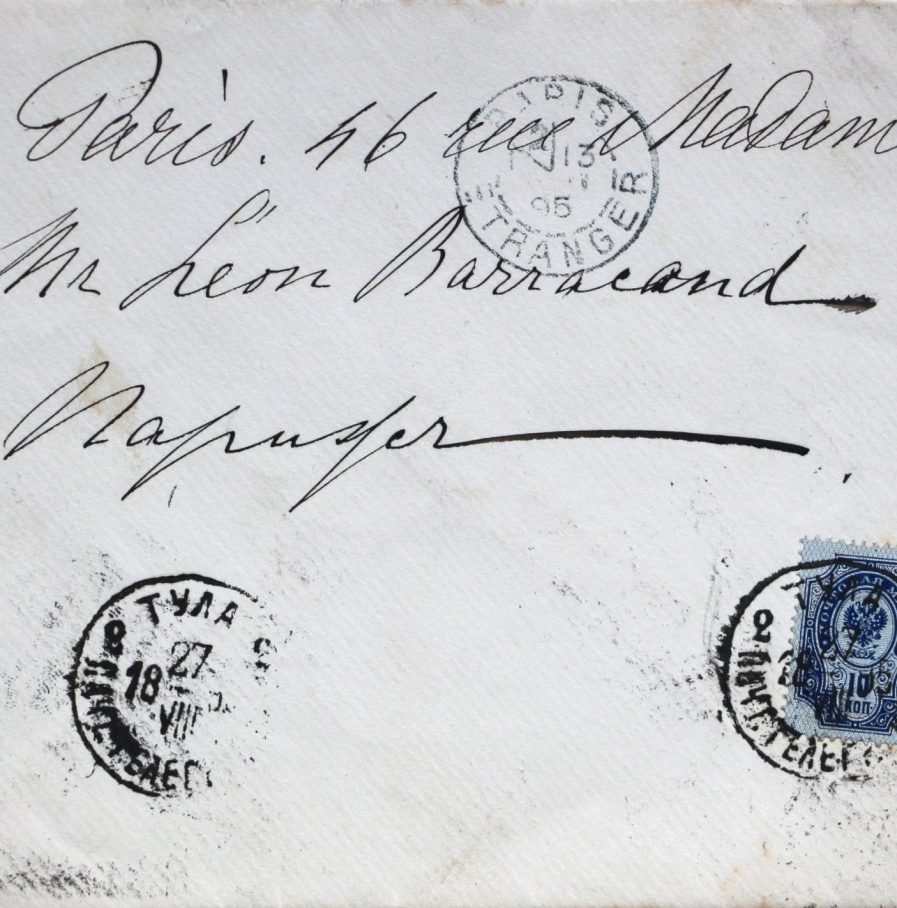 Paris. 46 rue Madam
Mr Léon Barracand
Парижъ
PARIS
13
95
ETRANGER
ТУЛА
27
18
VIII
ТЕЛЕГ
ТУЛА
27
VIII
ТЕЛЕГ
10
КОП